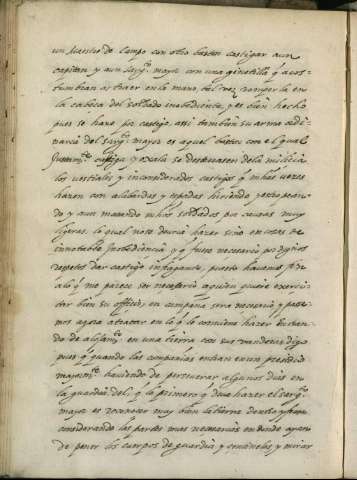 un maestro de campo con otro baston castigar a un
capitan y aun sargᵗᵒ. mayor con una ginetilla q̃ acos-
tumbran os traer en la mano tal vez romperla en
la cabeça del soldado inobediente, y es bien hecho
pues se haze por castigo, assi tambien su arma ordi-
naria del sargᵗᵒ. mayor es aquel baston con el qual
castiga y oxala se desterrasen dela milicia
los vestiales y inconsiderados castigos q̃ muchas vezes
hazen con alabardas y espadas hiriendo estropean-
do y aun matando muchos soldados por causas muy
ligeras lo qual no se deuria hazer sino en casos de
innotable inobediencia y q̃ fuese necesario por dignos
respetos dar castigo
q̃ me parece ser necesario aquien quiere exerci-
tar bien su officio, en campaña sera necesario y pase-
mos agora atratar en lo q̃ le conuiene hazer
do de alojamᵗᵒ. en una tierra con sus vanderas digo
pues q̃ quando las companias entran en un presidio
mayormᵗᵉ. hauiendo de perseuerar algunos dias en
la guardia del, q̃ lo primero q̃ deue hazer el sargᵗᵒ.
mayor es reconocer muy bien la tierra dentro y fuera
considerando las partes mas necesarias en donde ayan
de poner los cuerpos de guardia y centinelas y mirar